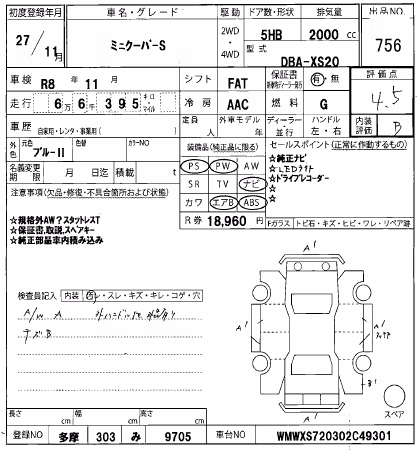 初度登録年月
車名・グレード
駆動
ドア数・形状
排気量
出品NO
27/11月
ミニクーパーS
2WD
・
4WD
5HB
2000 cc
型式
DBA-XS20
756
車検
R8 年 11 月
シフト
FAT
保証書
有・無
評価点
走行
6万6千395 キロ・マイル
冷房
AAC
燃料
G
4.5
車歴
自家用・レンタ・事業用( )
定員
人
外車モデル
年
ディーラー
並行
ハンドル
左・右
内装評価
B
外色
元色
ブルーII
色替
カラーNO
装備品(純正品に限る)
PS PW AW
SR TV ナビ
カワ エアB ABS
R券 18,960 円
セールスポイント(正常に作動するもの)
★純正ナビ
★LEDライト
★ドライブレコーダー
☆
☆
名義変更期限
月 日
積載
t
注意事項(欠品・修復・不具合箇所および状態)
☆規格外AW?スタットレスT
☆保証書,取説,スペアキー
☆純正部品車内積み込み
Fガラス
トビ石・キズ・ヒビ・ワレ・リペア跡
検査員記入
内装
レ・スレ・キズ・キレ・コゲ・穴
A/W A
キズB
A'
A'
A'
B'
A'
スペア
長さ
cm
幅
cm
高さ
cm
登録NO
多摩
303
み
9705
車台NO
WMWXS720302C49301